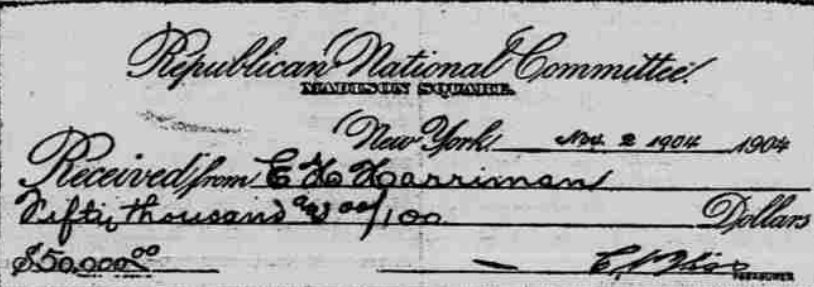 Republican National Committee.
MADISON SQUARE.
New York, Nov. 2 1904 1904
Received from E H Harriman
Fifty thousand and 00/100 Dollars
$50,000.00 — C. N. Bliss
TREASURER